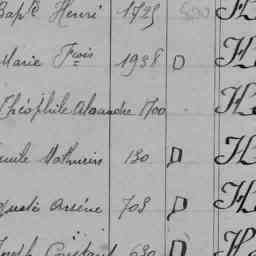 Bapte Henri 1725 500 H
Marie Fcois 1938 D H
Théophile Alexandre 1700 H
Emile Mathurin 130 D H
Auguste Arsène 703 D H
Joseph Constant 630 D H